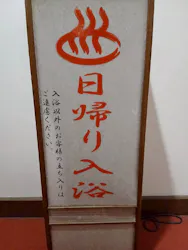 日帰り入浴
入浴以外のお客様の立ち入りは
ご遠慮ください。